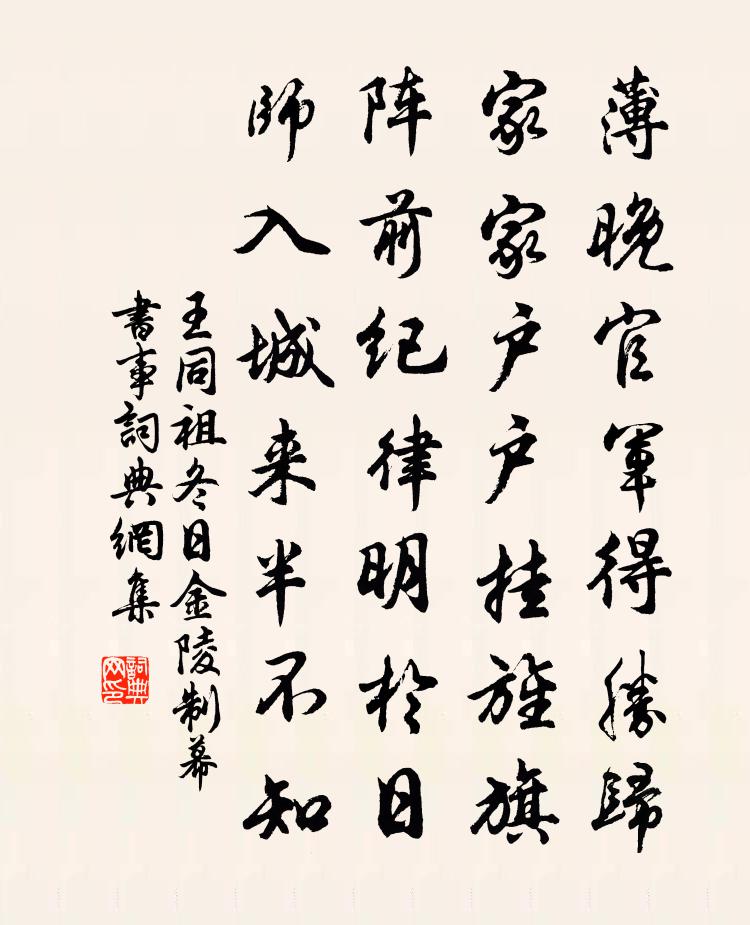 薄晚官军得勝歸
家家户户挂旌旗
阵前纪律明於日
師入城来半不知
王同祖冬日金陵制幕
書事詞典網集
詞典网印